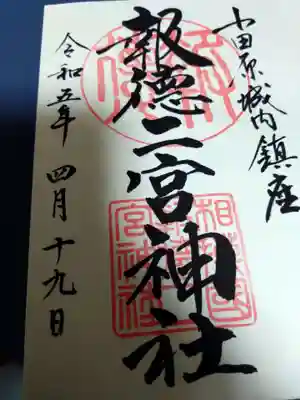 小田原城内鎮座
報徳二宮神社
令和五年 四月十九日
報徳
相模國
宮神社